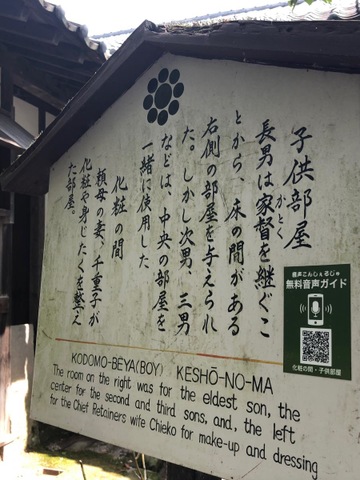 子供部屋
長男は家督を継ぐこ
かとく
とから、床の間がある
右側の部屋を与えられ
た。しかし次男、三男
などは、中央の部屋を
一緒に使用した
化粧の間
頼母の妻、千重子が
化粧や身じたくを整え
た部屋。
KODOMO-BEYA(BOY) KESHŌ-NO-MA
The room on the right was for the eldest son, the
center for the second and third sons, and, the left
for the Chief Retainers wife Chieko for make-up and dressing
音声こんしぇるじゅ
無料音声ガイド
化粧の間・子供部屋